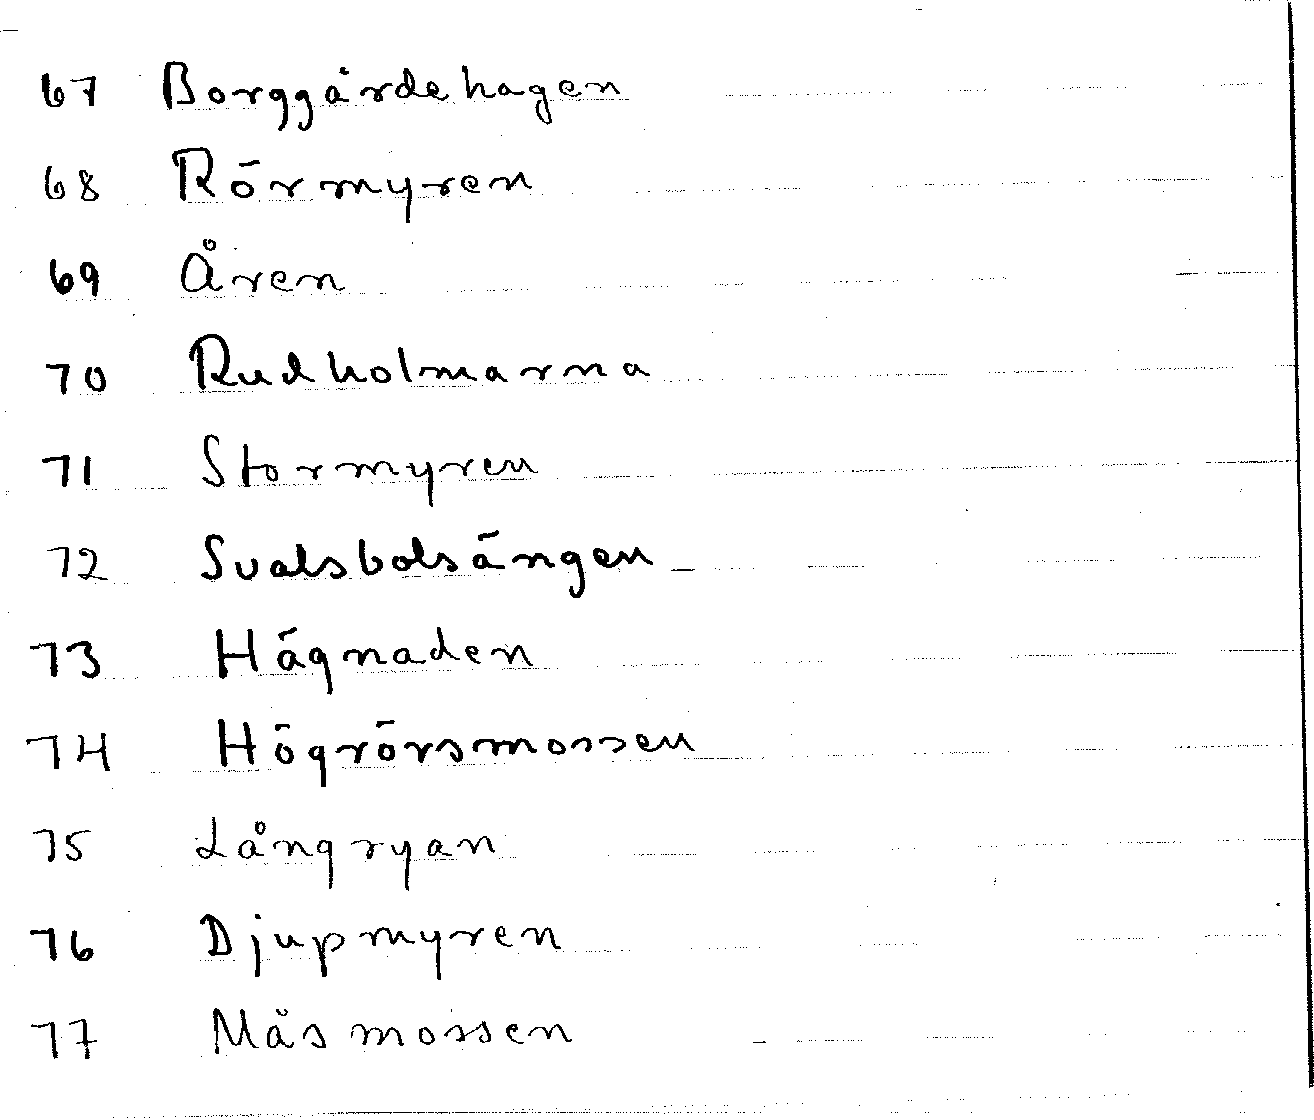 67 Borggårdehagen
68 Rörmyren
69 Åren
70 Rudholmarna
71 Stormyren
72 Svalsbolsängen
73 Hägnaden
74 Högrörsmossen
75 Långryan
76 Djupmyren
77 Måsmossen